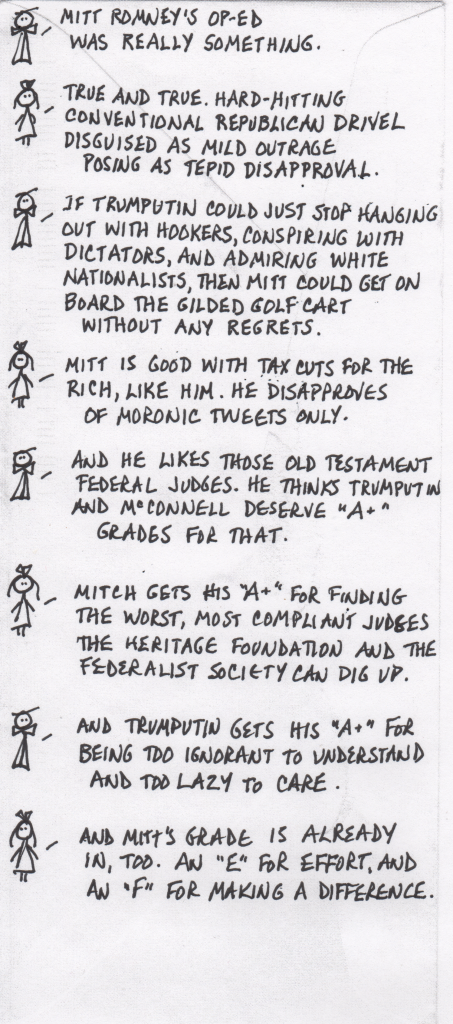 MITT ROMNEY'S OP-ED
WAS REALLY SOMETHING.
TRUE AND TRUE. HARD-HITTING
CONVENTIONAL REPUBLICAN DRIVEL
DISGUISED AS MILD OUTRAGE
POSING AS TEPID DISAPPROVAL.
IF TRUMPUTIN COULD JUST STOP HANGING
OUT WITH HOOKERS, CONSPIRING WITH
DICTATORS, AND ADMIRING WHITE
NATIONALISTS, THEN MITT COULD GET ON
BOARD THE GILDED GOLF CART
WITHOUT ANY REGRETS.
MITT IS GOOD WITH TAX CUTS FOR THE
RICH, LIKE HIM. HE DISAPPROVES
OF MORONIC TWEETS ONLY.
AND HE LIKES THOSE OLD TESTAMENT
FEDERAL JUDGES. HE THINKS TRUMPUTIN
AND McCONNELL DESERVE "A+"
GRADES FOR THAT.
MITCH GETS HIS "A+" FOR FINDING
THE WORST, MOST COMPLIANT JUDGES
THE HERITAGE FOUNDATION AND THE
FEDERALIST SOCIETY CAN DIG UP.
AND TRUMPUTIN GETS HIS "A+" FOR
BEING TOO IGNORANT TO UNDERSTAND
AND TOO LAZY TO CARE.
AND MITT'S GRADE IS ALREADY
IN, TOO. AN "E" FOR EFFORT, AND
AN "F" FOR MAKING A DIFFERENCE.